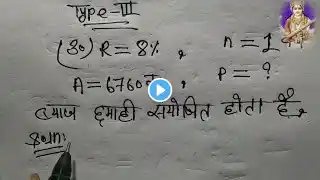 Type-III
(30) R = 8% , n = 1 वर्ष
A = 6760 रु , P = ?
ब्याज छमाही संयोजित होता है,
Soln: